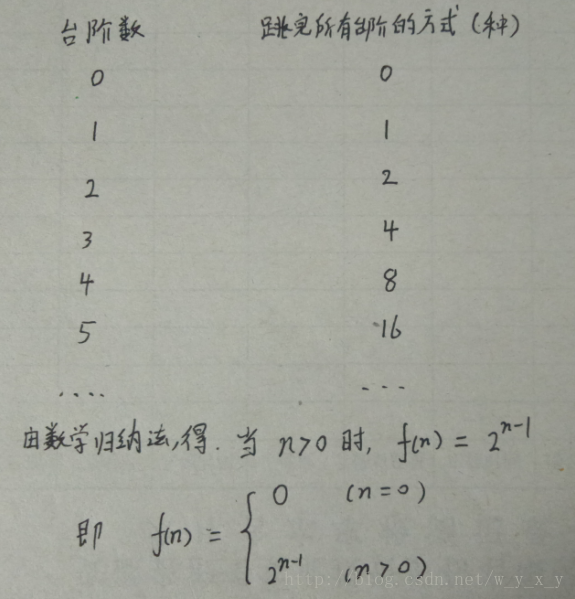 台阶数 跳完所有台阶的方式(种)
0 0
1 1
2 2
3 4
4 8
5 16
.... ...
由数学归纳法,得. 当 n>0 时, f(n) = 2^{n-1}
即 f(n) = { 0 (n=0)
2^{n-1} (n>0)
http://blog.csdn.net/w_y_x_y